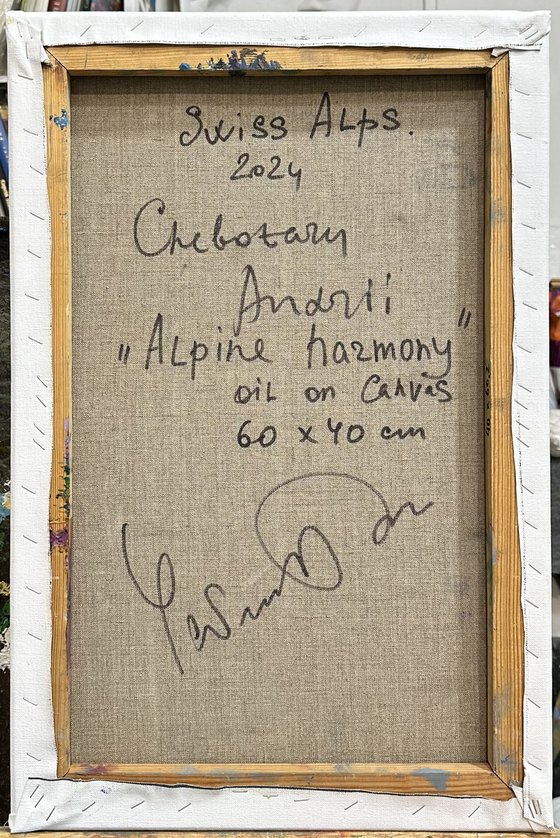 Swiss Alps.
2024
Chebotaru
Andrii
"Alpine harmony"
oil on canvas
60 x 40 cm